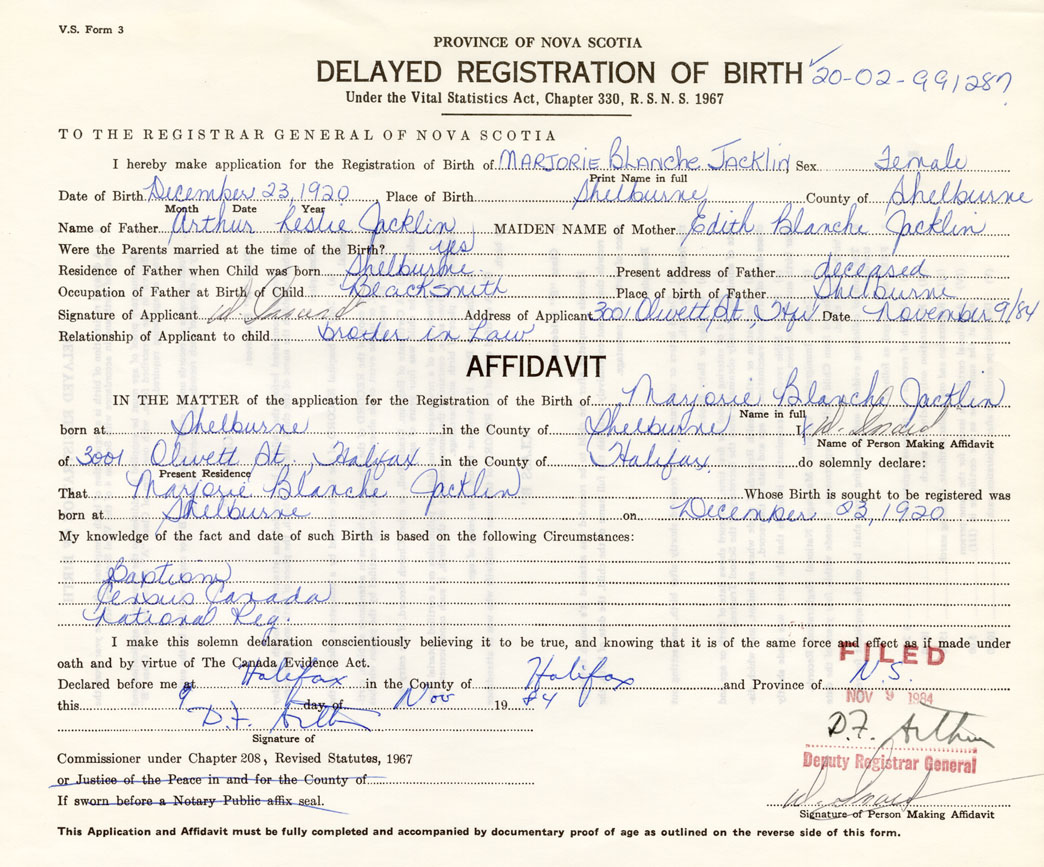 V.S. Form 3
PROVINCE OF NOVA SCOTIA
DELAYED REGISTRATION OF BIRTH 20-02-991287
Under the Vital Statistics Act, Chapter 330, R.S.N.S. 1967
TO THE REGISTRAR GENERAL OF NOVA SCOTIA
I hereby make application for the Registration of Birth of MARJORIE BLANCHE JACKLIN, Sex Female
Print Name in full
Date of Birth December 23, 1920 Place of Birth Shelburne County of Shelburne
Month Date Year
Name of Father Arthur Leslie Jacklin MAIDEN NAME of Mother Edith Blanche Jacklin
Were the Parents married at the time of the Birth? yes
Residence of Father when Child was born Shelburne Present address of Father deceased
Occupation of Father at Birth of Child Blacksmith Place of birth of Father Shelburne
Signature of Applicant W. Address of Applicant 3001 Olivett St, Hfx Date November 9/84
Relationship of Applicant to child broder in Law
AFFIDAVIT
IN THE MATTER of the application for the Registration of the Birth of Marjorie Blanche Jacklin
Name in full
born at Shelburne in the County of Shelburne I, W.
Name of Person Making Affidavit
of 3001 Olivett St., Halifax in the County of Halifax do solemnly declare:
Present Residence
That Marjorie Blanche Jacklin Whose Birth is sought to be registered was
born at Shelburne on December 23, 1920
My knowledge of the fact and date of such Birth is based on the following Circumstances:
Baptism
Census Canada
National Reg.
I make this solemn declaration conscientiously believing it to be true, and knowing that it is of the same force and effect as if made under
oath and by virtue of The Canada Evidence Act.
FILED
Declared before me at Halifax in the County of Halifax and Province of N.S.
this 9 day of Nov 1984
NOV 9 1984
D.F. Arthur
D.F. Arthur
Signature of
Deputy Registrar General
Commissioner under Chapter 208, Revised Statutes, 1967
or Justice of the Peace in and for the County of
If sworn before a Notary Public affix seal.
W.
Signature of Person Making Affidavit
This Application and Affidavit must be fully completed and accompanied by documentary proof of age as outlined on the reverse side of this form.